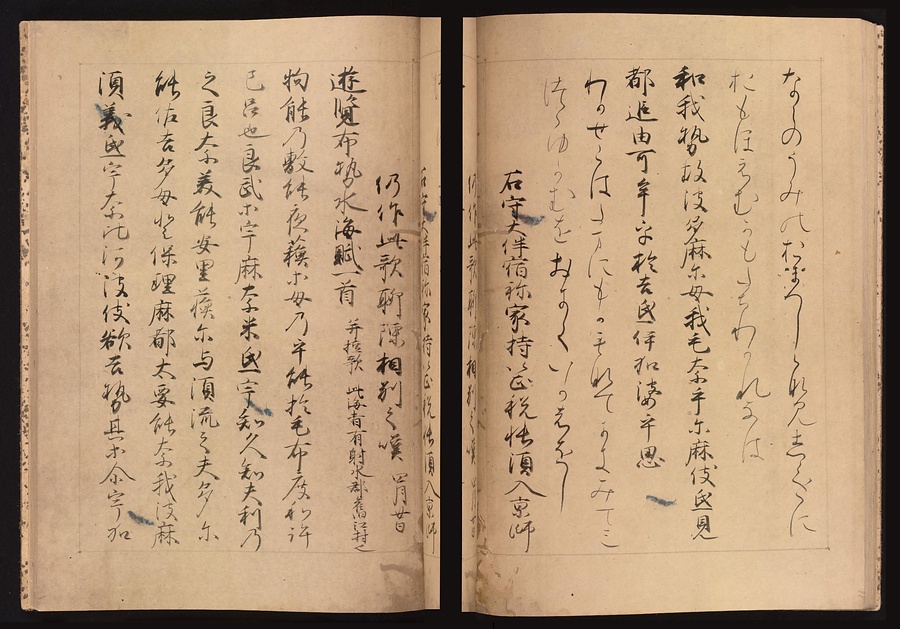 なこのうみのおきつしらなみしくしくに
おもほえむかもたちわかれなは
和我勢故波多麻尓母我毛奈手尓麻伎氐見
都追由可牟乎於吉氐伊加婆乎思
わかせこはたまにもかもなてにまきてみ
つゝゆかむをおきていかはをし
右守大伴宿祢家持以正税帳須入京師
仍作此歌聊陳相別之嘆 四月廿日
遊覧布勢水海賦一首 并短歌 此海者有射水郡舊江村也
物能乃敷能夜蘇等母乃乎能於毛布度知許
己呂也良武等宇麻奈米氐宇知久知夫利乃
之良奈美能安里蘇尓与須流之夫多尓
能佐吉多母登保理麻都太要能奈我波麻
須義氐宇奈比河波伎欲吉勢其等尓宇加